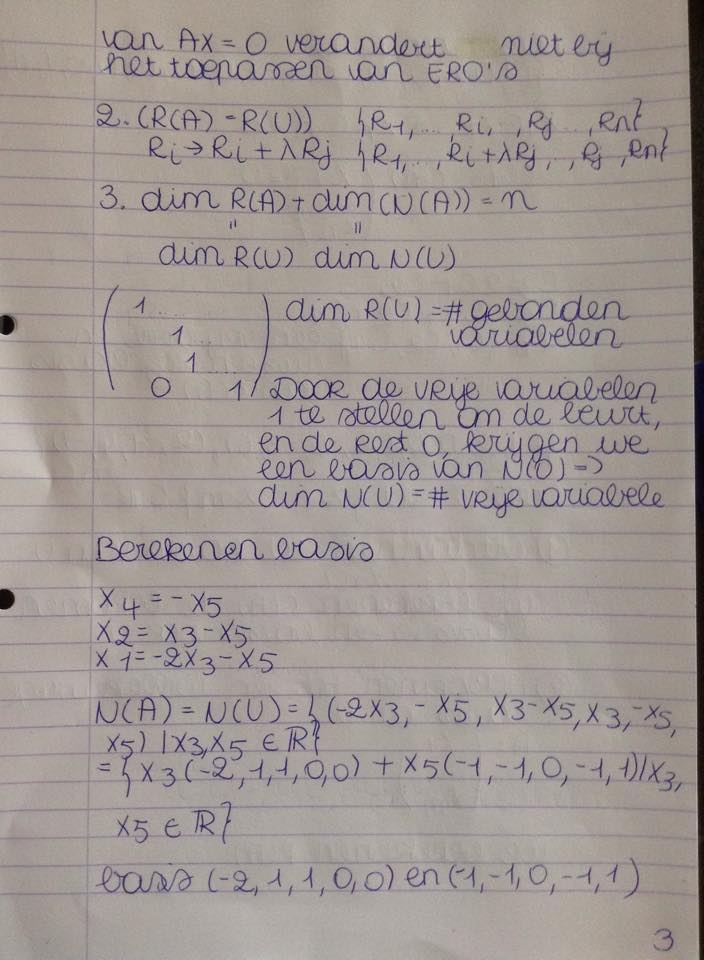 van Ax = 0 verandert niet bij
het toepassen van ERO's
2. (R(A) = R(U)) {R1, ..., Ri, .., Rj ..., Rn}
Ri → Ri + λRj {R1, .., Ri+λRj, .., Rj, Rn}
3. dim R(A) + dim(N(A)) = n
" "
dim R(U) dim N(U)
( 1 ... ) dim R(U) = # gebonden
1 ... variabelen
1 ...
0 1 Door de vrije variabelen
1 te stellen om de beurt,
en de rest 0, krijgen we
een basis van N(U) =>
dim N(U) = # vrije variabele
Berekenen basis
x4 = -x5
x2 = x3 - x5
x1 = -2x3 - x5
N(A) = N(U) = {(-2x3, -x5, x3-x5, x3, -x5,
x5) | x3, x5 ∈ ℝ}
= {x3(-2,1,1,0,0) + x5(-1,-1,0,-1,1) | x3,
x5 ∈ ℝ}
basis (-2,1,1,0,0) en (-1,-1,0,-1,1)
3